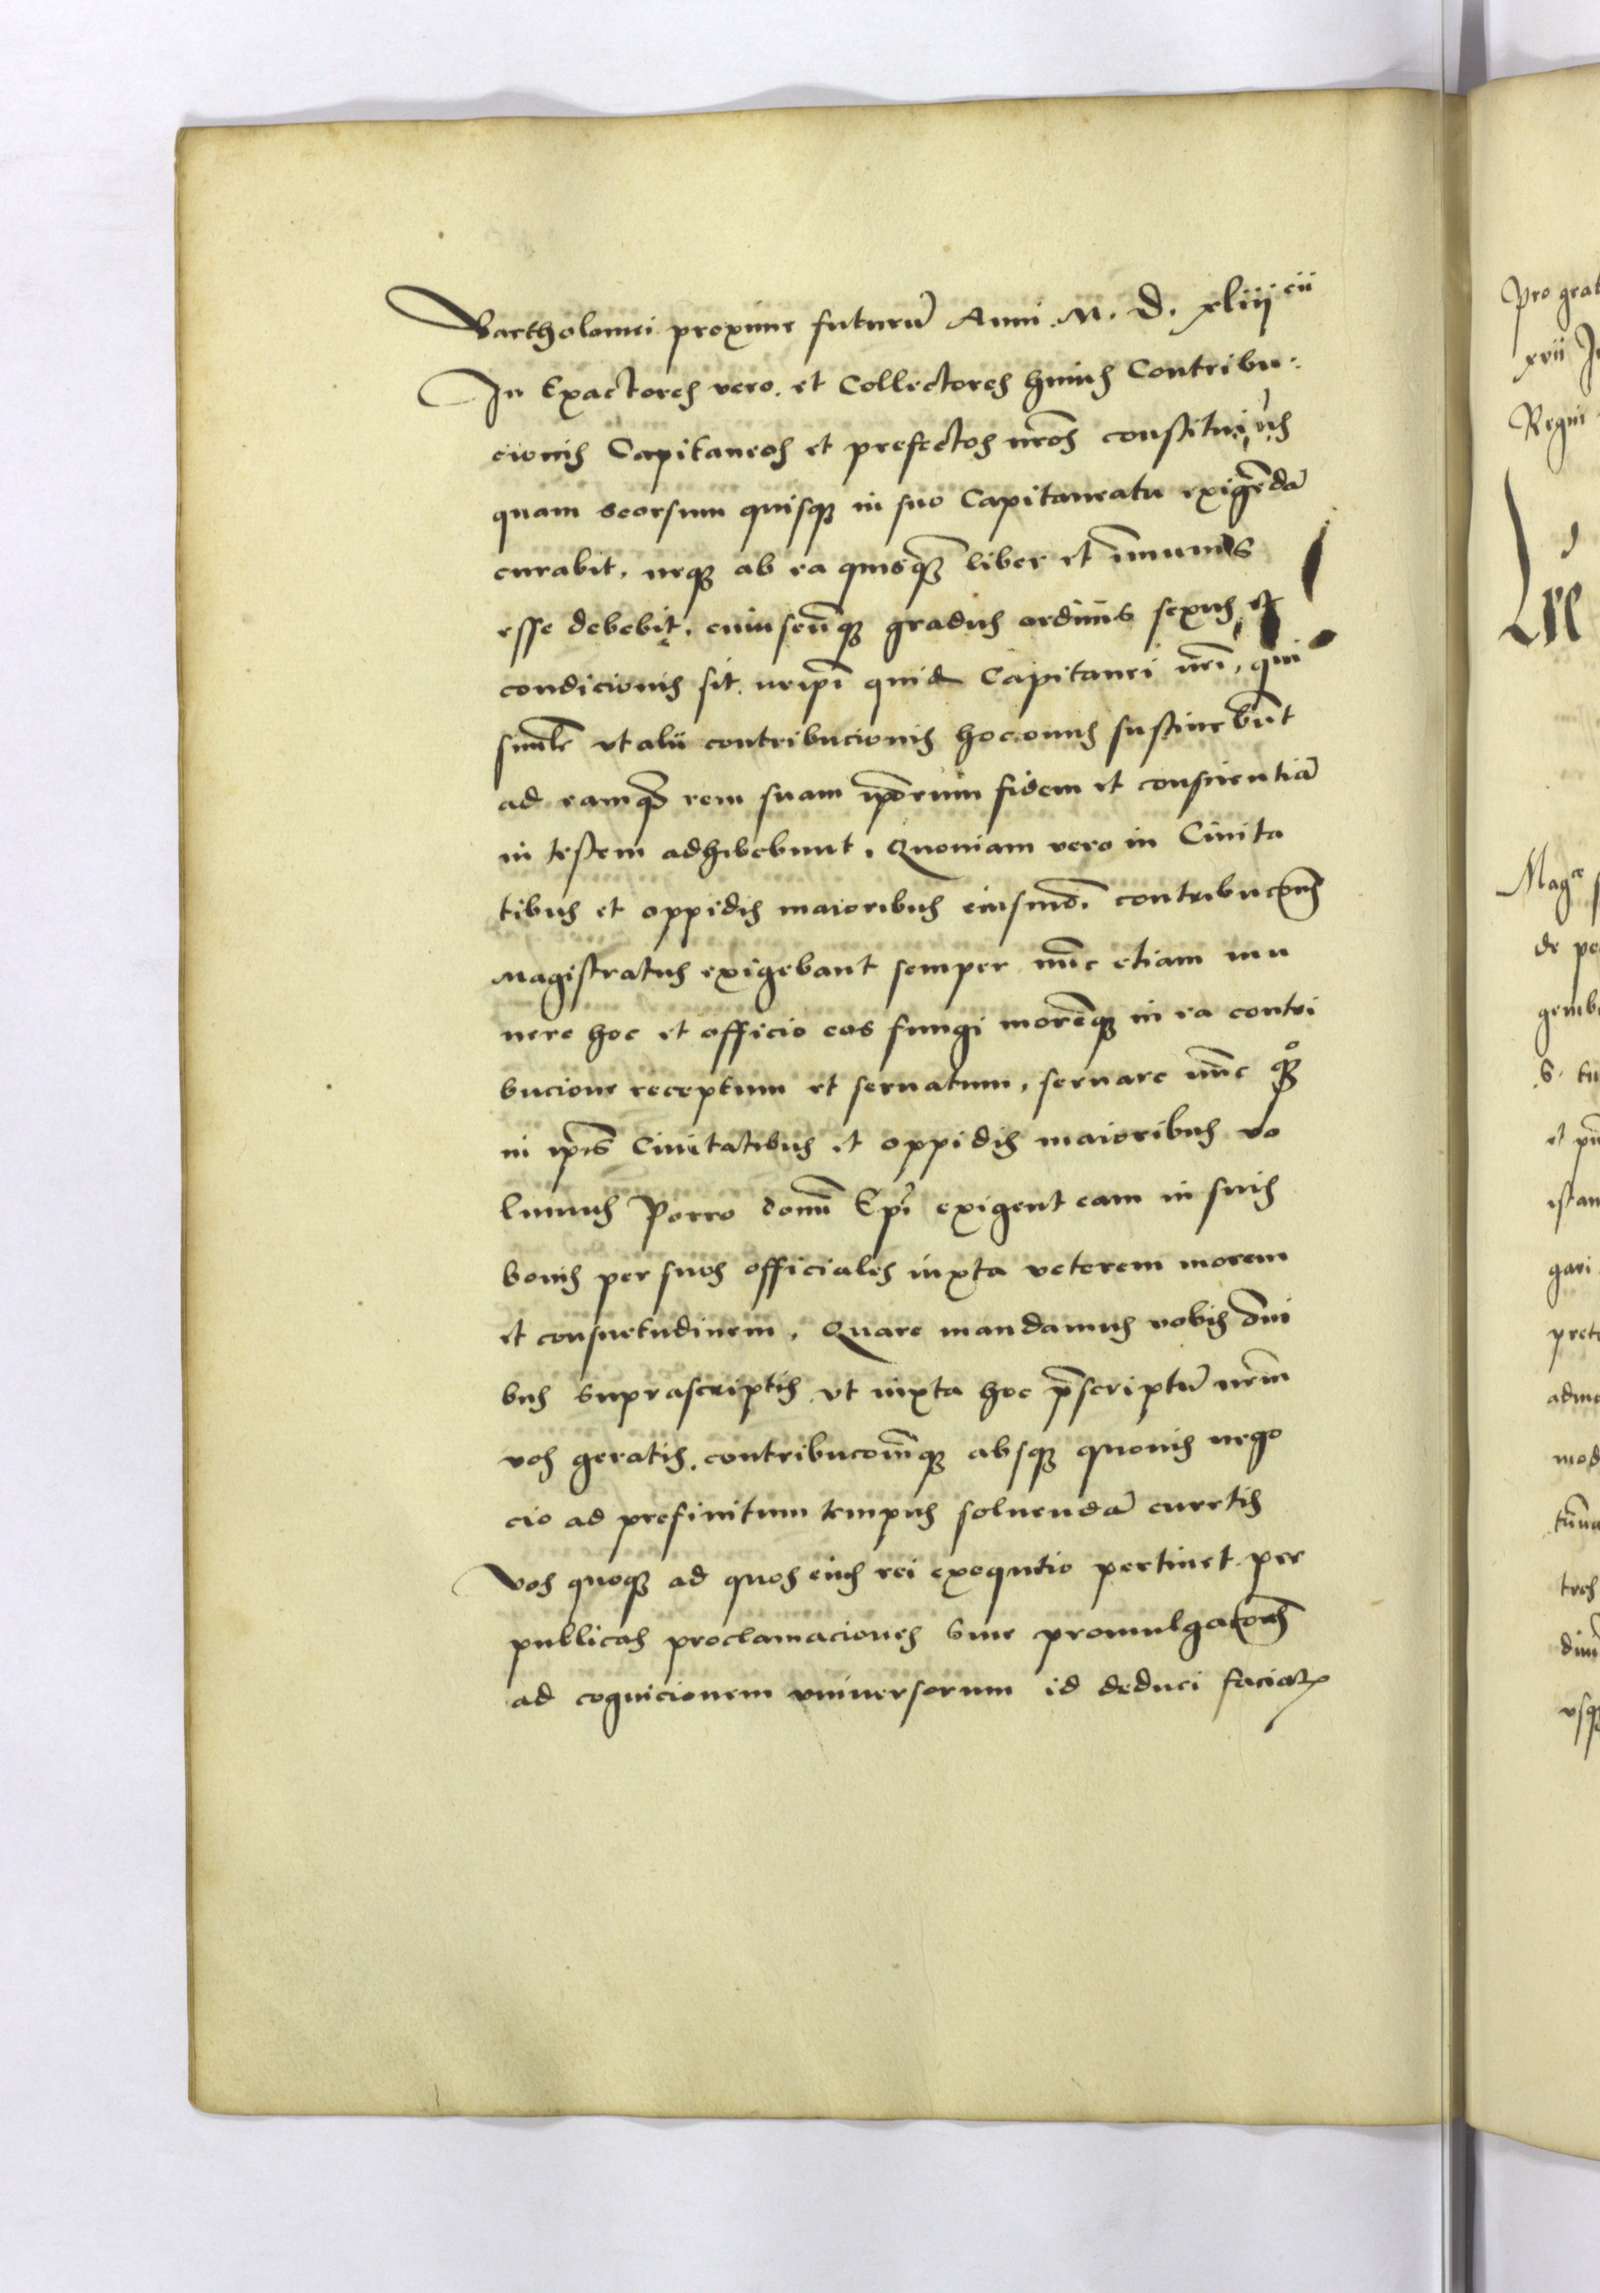 Bartholomei proxime futurū Anni .M. D. xliiij cii
In Exactores vero et Collectores huius Contribu:
cionis Capitaneos et prefectos nr̄os constituim̄us
quam seorsum quisq̢ in suo Capitaneatu exigēdā
curabit, neq̢ ab ea quisq̢̄ liber et īmunis
esse debebit, cuiuscūq̢ gradus ordinis sexus et
condicionis sit. ne ip̄i quid Capitanei nr̄i, qui
simile vt alii contribucionis hoc onus sustinebūt
ad eamq̢ rem suam ip̄orum fidem et conscientiā
in testem adhibebunt, Quoniam vero in Ciuita
tibus et oppidis maioribus eiusmōi contribuc̄oīs
Magistratus exigebant semper nūc etiam mu
nere hoc et officio eos fungi morēq̢ in ea contri
bucione receptum et seruatum, seruare nūc q̢̊
in ip̄is Ciuitatibus et oppidis maioribus vo
lumus Porro domī Ep̄i exigent eam in suis
bonis per suos officiales iuxta veterem morem
et consuetudinem, Quare mandamus vobis om̄i
bus suprascriptis vt iuxta hoc p̄scriptū nr̄m
vos geratis, contribuc̄oēmq̢ absq̢ quouis nego
cio ad prefinitum tempus soluendā curetis
Vos quoq̢ ad quos eius rei exequtio pertinet per
publicas proclamaciones siue promulgac̄oēs
ad cognicionem vniuersorum id deduci faciatꝭ
Pro grat
xvii
Regni
Mag
de pe
et
gari
pret
mod
tres
vsq̢